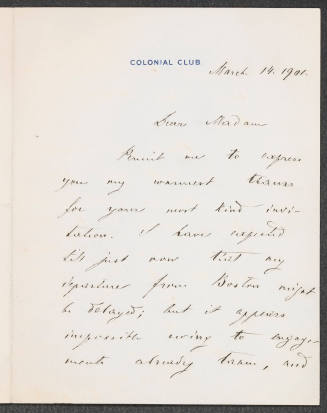 COLONIAL CLUB
March 14. 1901.
Dear Madam
Permit me to express
you my warmest thanks
for your most kind invi-
tation. I have expected
till just now that my
departure from Boston might
be delayed; but it appears
impossible owing to engage-
ments already taken, and